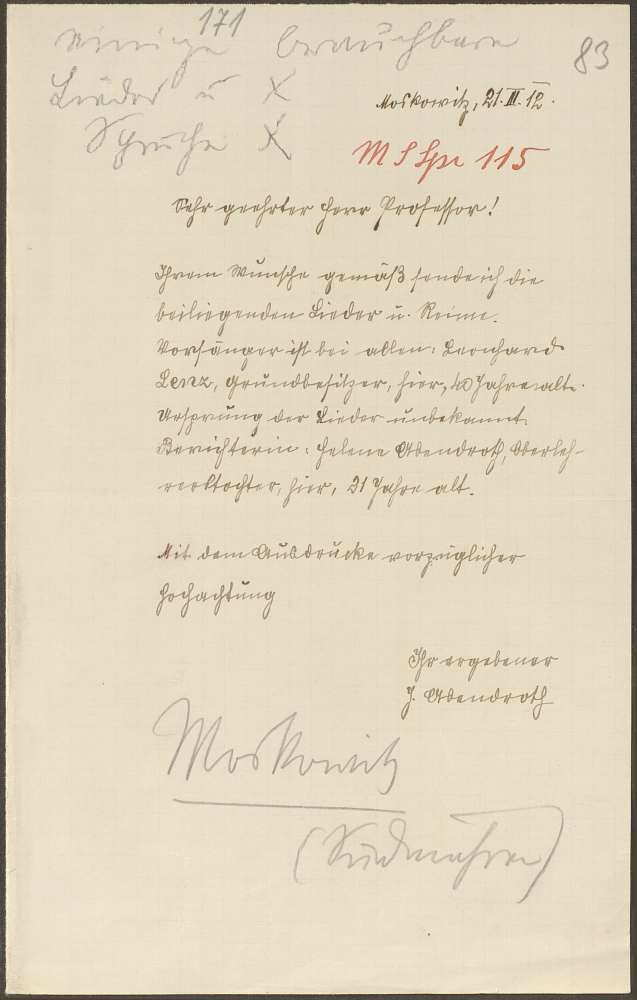 171
einige brauchbare
83
Lieder u X
Sprüche X
Moskowitz, 21. III. 12.
M S Spr 115
Sehr geehrter Herr Professor!
Ihrem Wunsche gemäß sende ich die
beiliegenden Lieder u. Reime.
Vorsänger ist bei allen: Leonhard
Lenz, Grundbesitzer, hier, 40 Jahre alt.
Ursprung der Lieder unbekannt.
Berichterin: Helene Abendroth, Oberleh-
rerstochter, hier, 21 Jahre alt.
Mit dem Ausdrucke vorzüglicher
Hochachtung
Ihr ergebener
J. Abendroth
Moskowitz
(Südmähren)